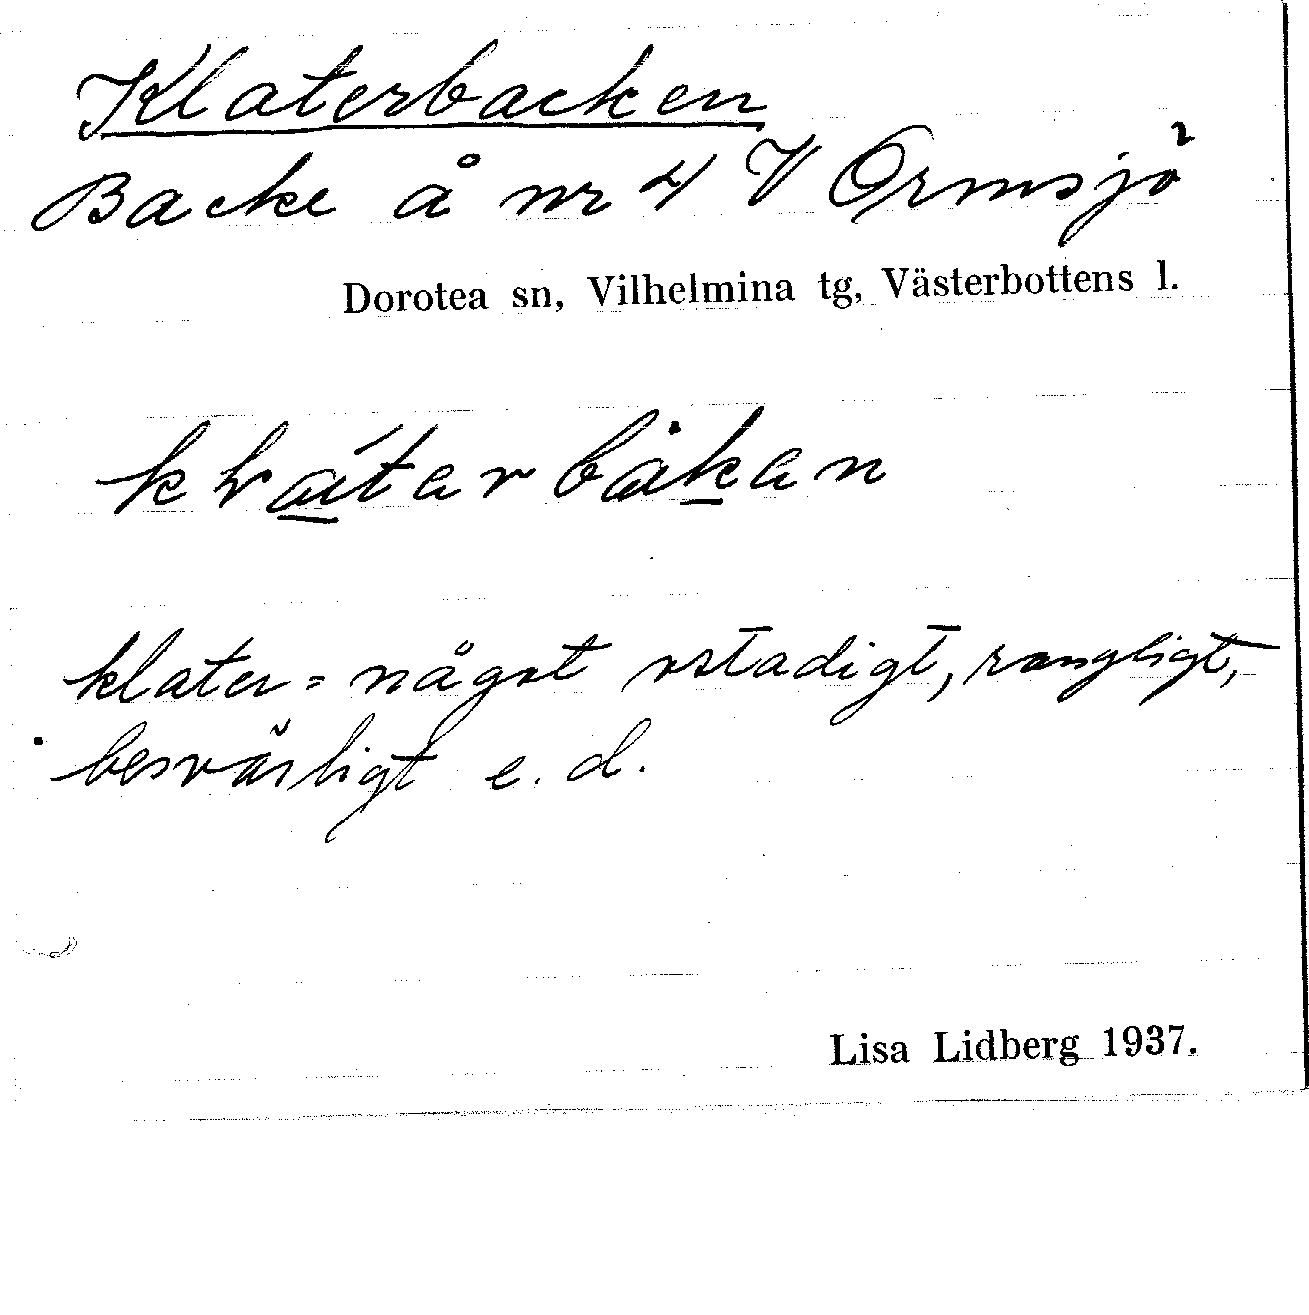 Klaterbacken
Backe å nr 4 V Ormsjö
Dorotea sn, Vilhelmina tg, Västerbottens l.
klater = något ostadigt, rangligt,
besvärligt e. d.
Lisa Lidberg 1937.